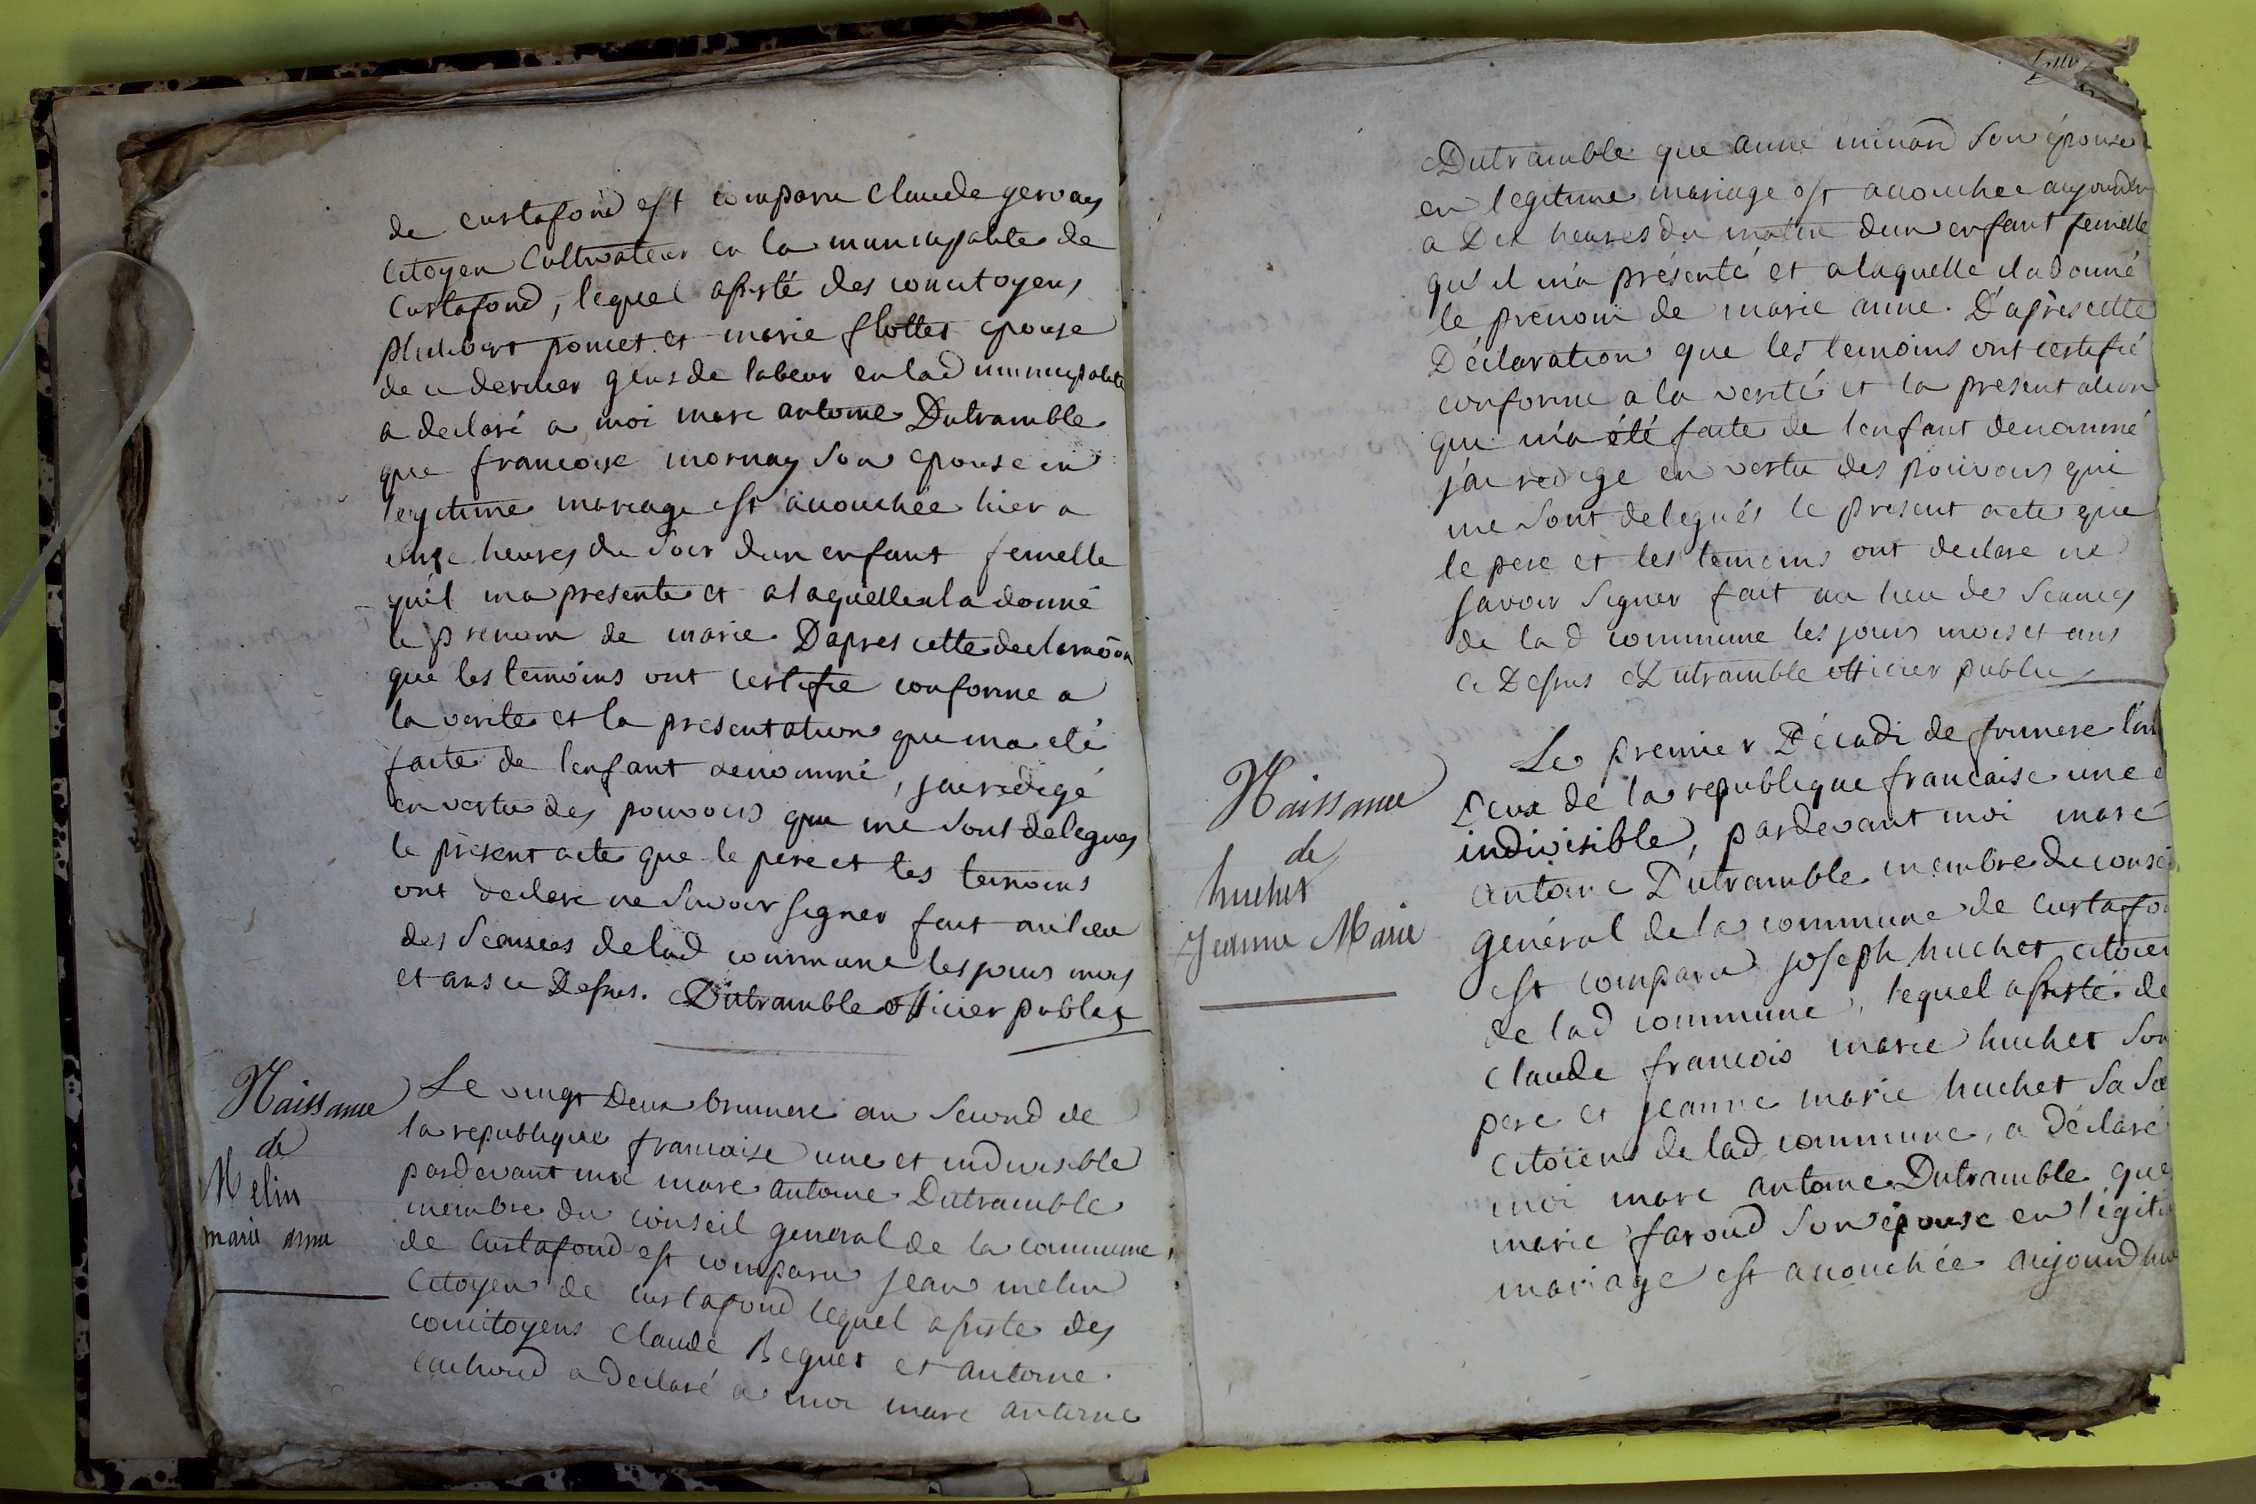 de curtafond est comparu Claude gervais
Citoyen Cultivateur en la municipalite de
Curtafond, lequel assisté des concitoyens
philibert poncet et marie flottes epouse
de ce dernier gens de labeur en lad municipalite
a declaré a moi marc antoine Dutramble
que francoise mornay son epouse en
legitime mariage est accouchée hier a
onze heures du soir dun enfant femelle
quil ma presente et alaquelle il a donné
le prenom de marie D'apres cette declaraōn
que les temoins ont certifie conforme a
la verite et la presentation que ma eté
faite de lenfant denommé, jai redigé
en vertu des pouvoirs qui me sont delegues
le present acte que le pere et les temoins
ont declaré ne savoir signer fait au lieu
des Seances de lad commune les jours mois
et ans ce Dessus. Dutramble officier public
Naissance
de
Melin
marie anne
Le vingt Deux brumere an second de
la republique francaise une et indivisible
pardevant moi marc antoine Dutramble
membre du conseil general de la commune
de Curtafond est comparu jean melin
Citoyen de curtafond lequel assiste des
concitoyens Claude Beguet et antoine
a declaré a moi marc antoine
Dutramble que anne minard son épouse
en legitime mariage est accouchee aujourdhu
a Dix heures du matin dun enfant femelle
qu'il m'a présenté et a laquelle il a donné
le prenom de marie anne. D'après cette
Déclaration que les temoins ont certifié
conforme a la verité et la presentation
qui m'a été faite de lenfant denommé
j'ai redige en vertu des pouvoirs qui
me sont delegués le present acte que
le pere et les temoins ont declare ne
savoir signer fait au lieu de Seances
de la d commune les jours mois et ans
ce Dessus Dutramble officier public
Naissance
de
huchet
Jeanne Marie
Le premier Décadi de frimere l'an
Deux de la republique francaise une e
indivisible, pardevant moi marc
antoine Dutramble membre du conse
général de la commune de curtafo
est comparu joseph huchet citoien
de lad commune, lequel assisté de
Claude francois marie huchet son
pere et jeanne marie huchet sa sœ
citoiens de lad commune, a Déclaré
moi marc antoine Dutramble que
marie faroud son épouse en légiti
mariage est accouchée aujourdhui